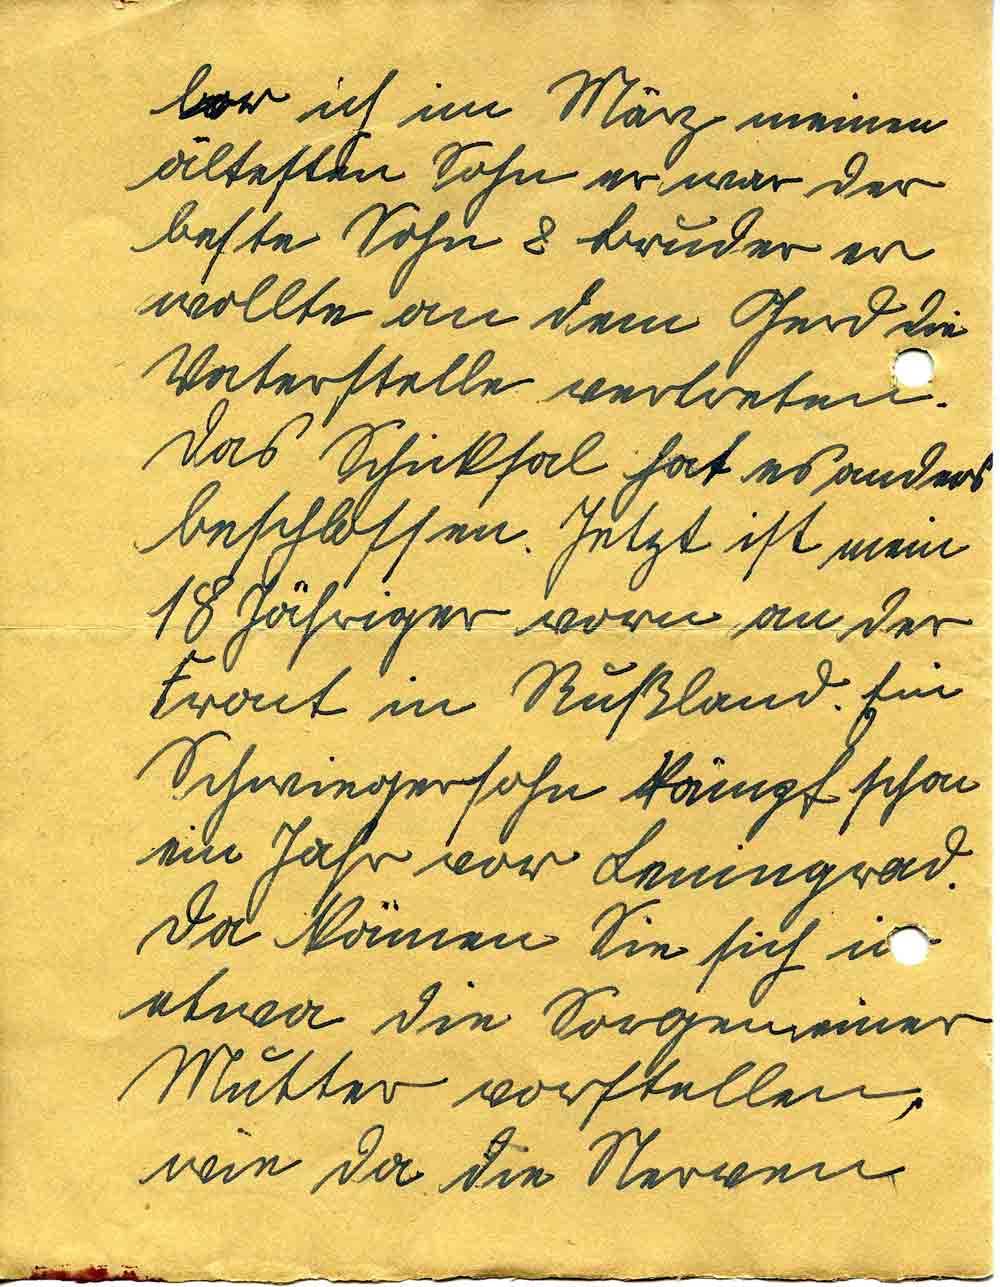 lor ich im März meinen
ältesten Sohn er war der
beste Sohn & Bruder er
wollte an dem Gerd die
Vaterstelle vertreten.
Das Schicksal hat es anders
beschlossen. Jetzt ist mein
18 Jähriger vorn an der
Front in Rußland. Ein
Schwiegersohn kämpf schon
ein Jahr vor Leningrad.
Da könnnen Sie sich in
etwa die Sorgen einer
Mutter vorstellen,
wie da die Nerven